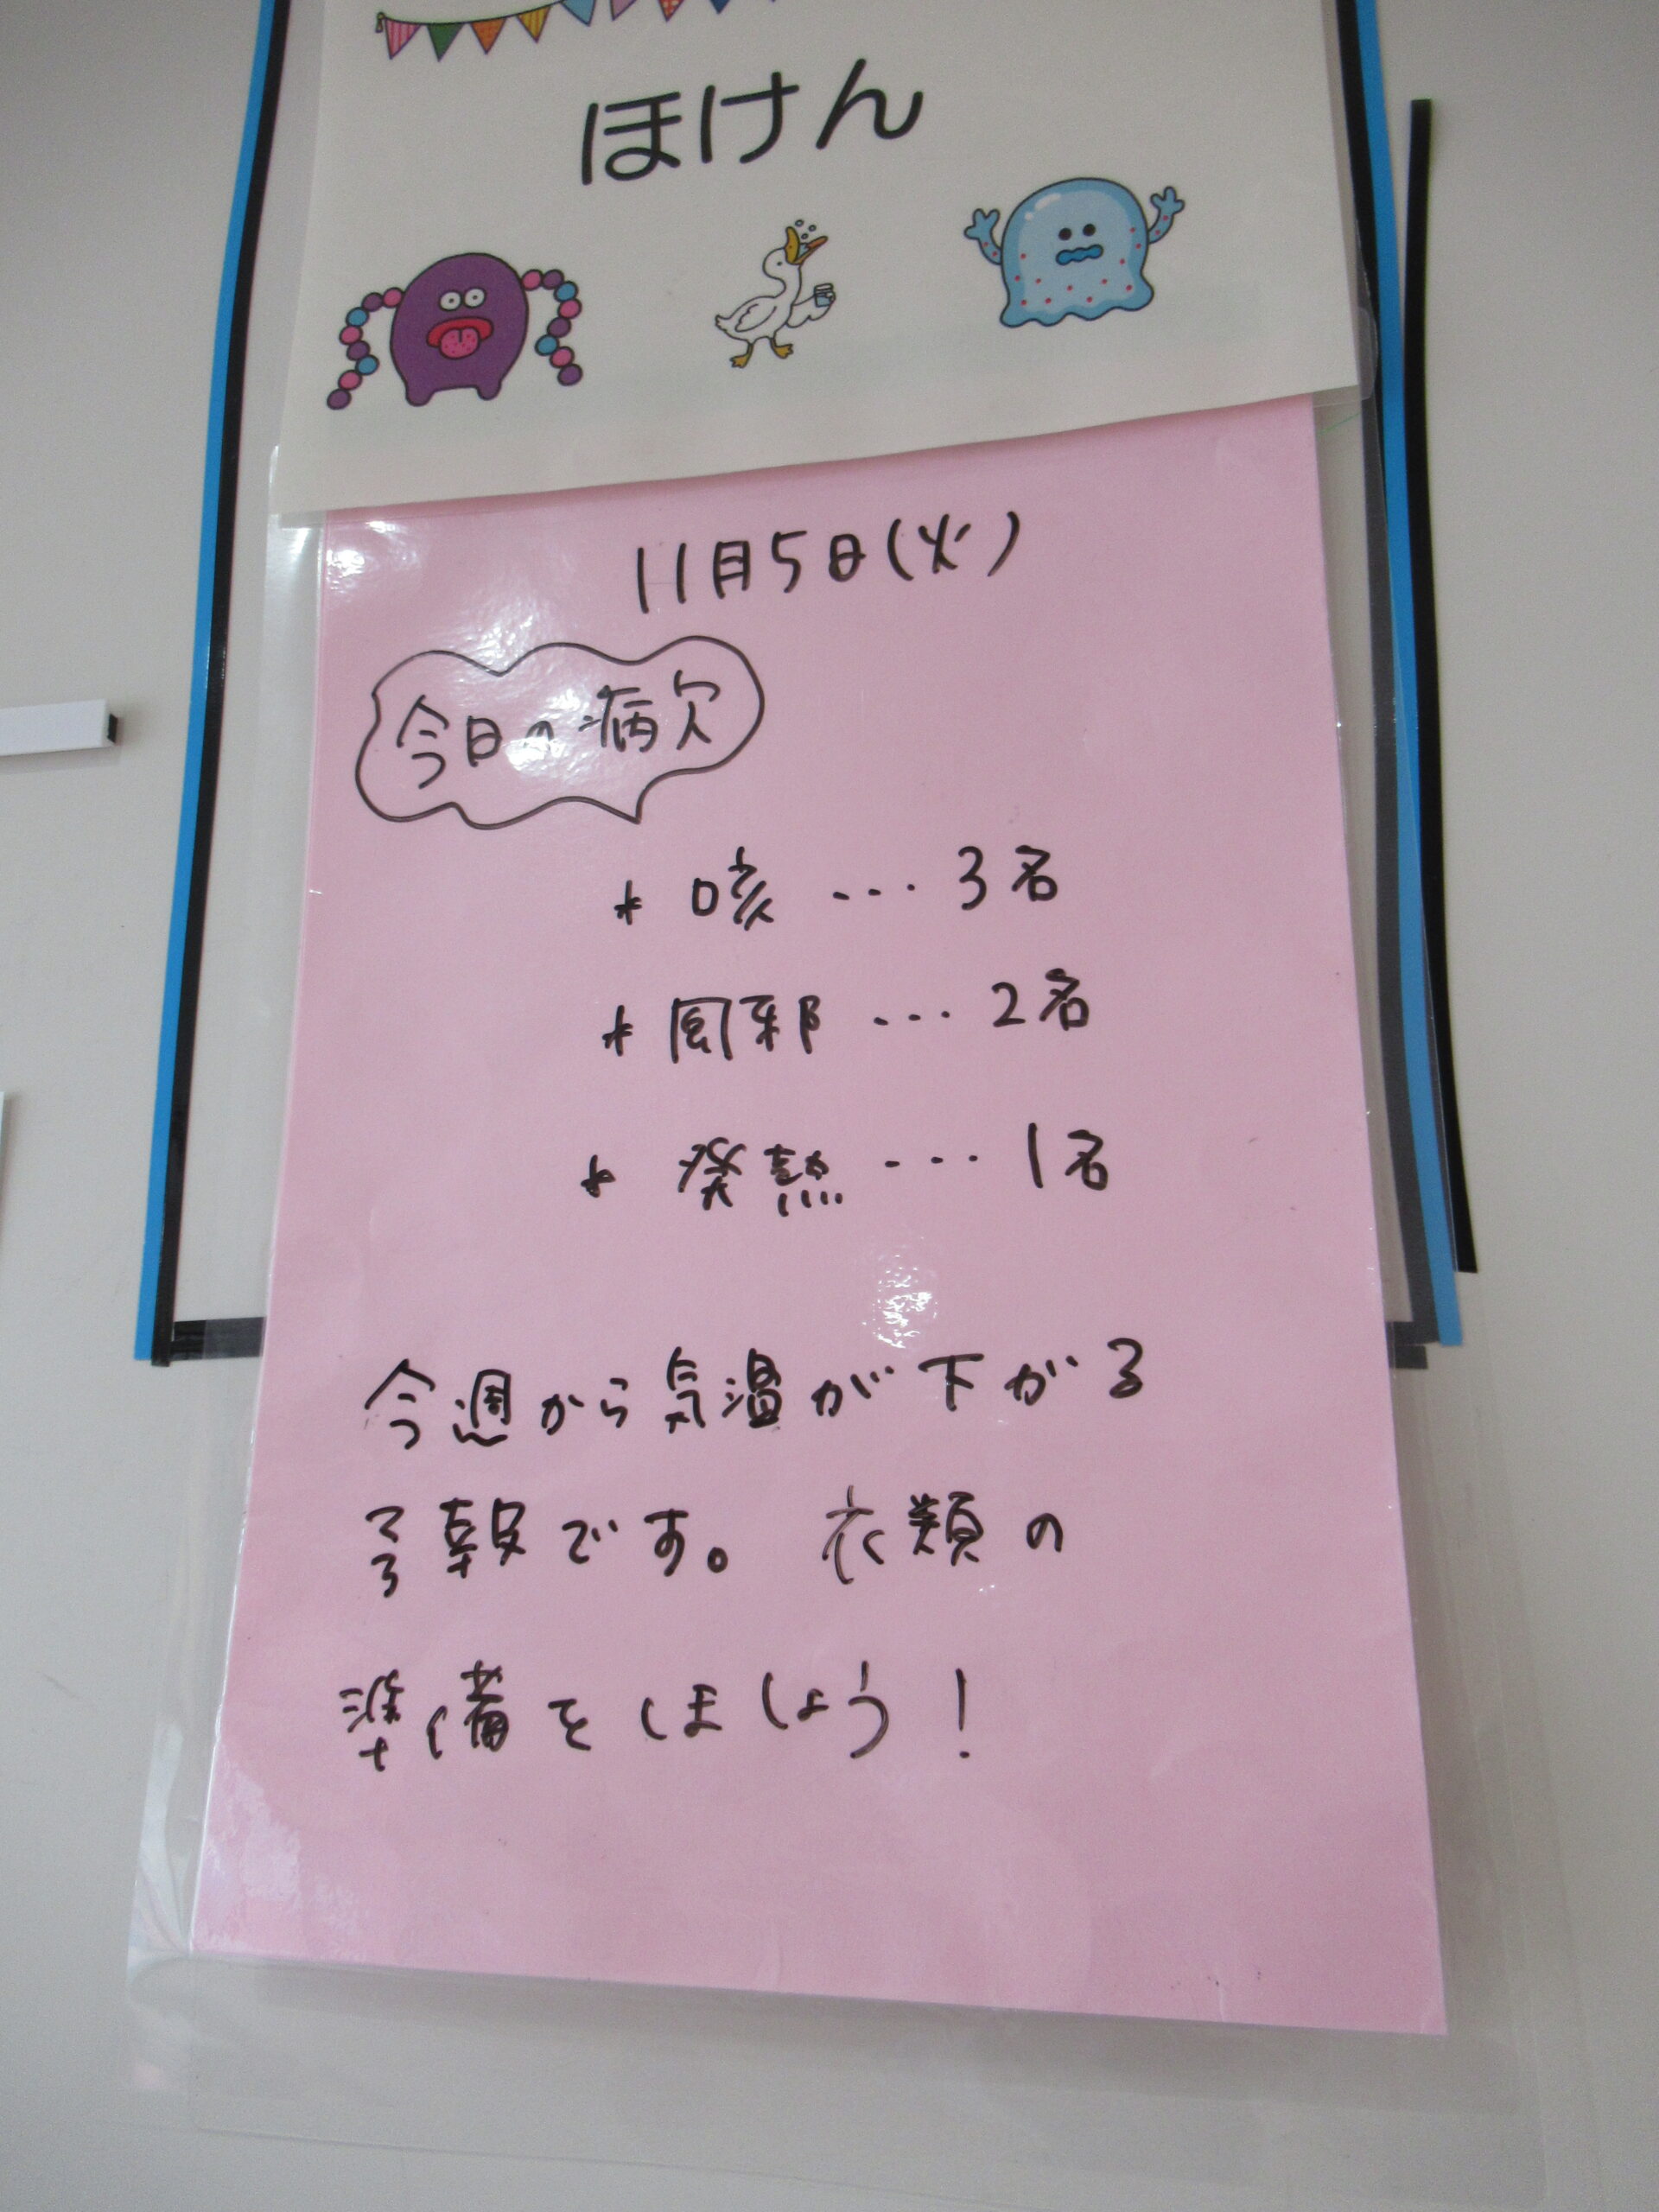 ほけん
11月5日(火)
今日の病欠
* 咳 ・・・ 3名
* 風邪 ・・・ 2名
* 発熱 ・・・ 1名
今週から気温が下がる
予報です。 衣類の
準備をしましょう!